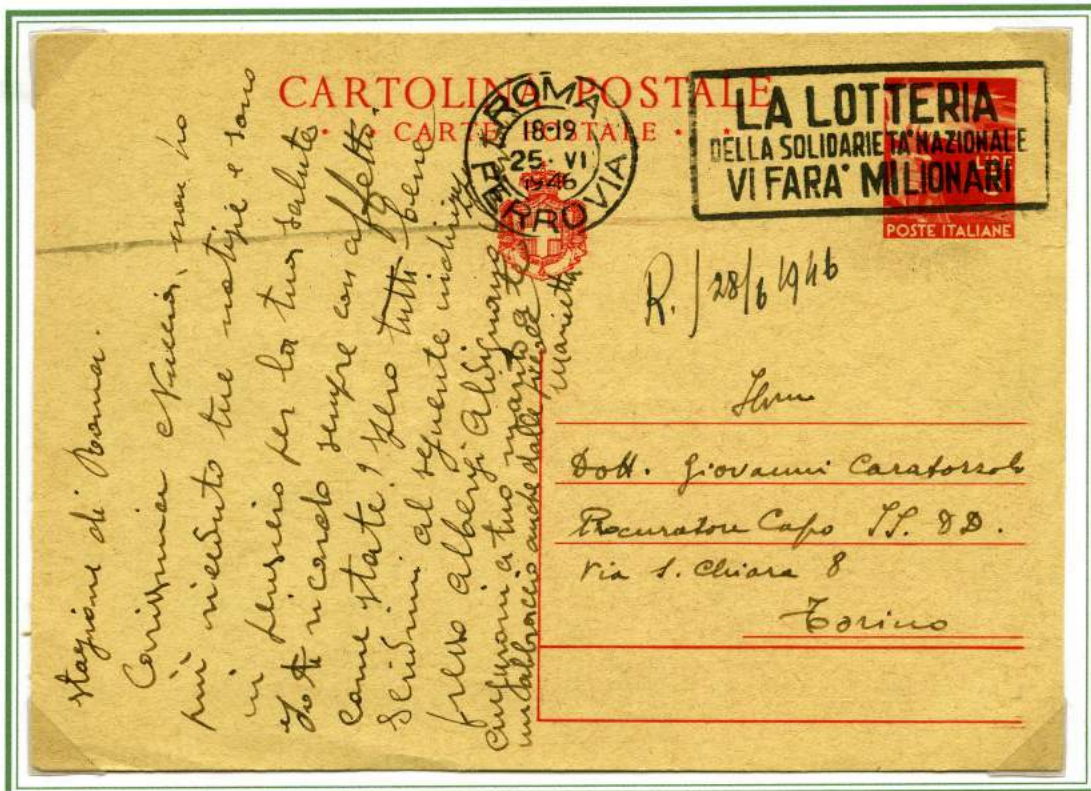 CARTOLINA POSTALE
CARTE POSTALE
ROMA FERROVIA
18-19
25·VI
1946
LA LOTTERIA
DELLA SOLIDARIETA' NAZIONALE
VI FARA' MILIONARI
POSTE ITALIANE
R. / 28/6 1946
Dott. Giovanni
Procuratore Capo II. DD.
Via S. Chiara 8
Torino
stagione di Roma.
Carissima Nuccia, non ho
più ricevuto tue notizie e sono
in pensiero per la tua salute
ti ricordo sempre con affetto.
come state, spero tutti bene
Scrivimi al seguente indirizzo
presso alberghi
a tuo marito a te
un abbraccio anche dalle
Marietta